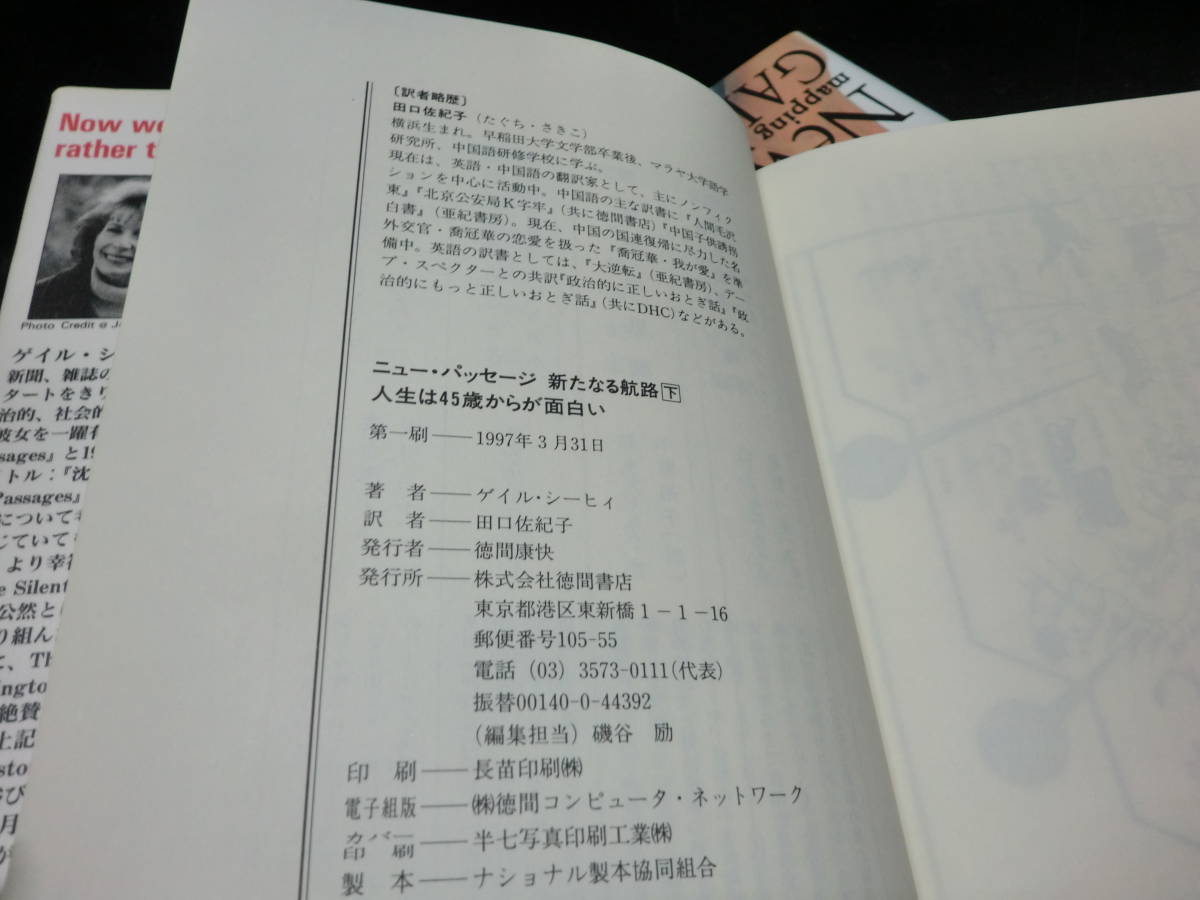 Now we
rather t
Photo Credit @ J
ゲイル・シ
新聞、雑誌の
タートをきり
治的、社会的
彼女を一躍有
sages』と19
トル:『沈
Passages』
についても
じていても
より幸福
e Silent
公然と
り組ん
て、Th
ington
絶賛
上記
sto
月
New
mapping
GA
〔訳者略歴〕
田口佐紀子(たぐち・さきこ)
横浜生まれ。早稲田大学文学部卒業後、マラヤ大学語学
研究所、中国語研修学校に学ぶ。
現在は、英語・中国語の翻訳家として、主にノンフィク
ションを中心に活動中。中国語の主な訳書に『人間毛沢
東』『北京公安局K字牢』(共に徳間書店)『中国子供誘拐
白書』(亜紀書房)。現在、中国の国連復帰に尽力した名
外交官・喬冠華の恋愛を扱った『喬冠華・我が愛』を準
備中。英語の訳書としては、『大逆転』(亜紀書房)、デー
ブ・スペクターとの共訳『政治的に正しいおとぎ話』『政
治的にもっと正しいおとぎ話』(共にDHC)などがある。
ニュー・パッセージ 新たなる航路 下
人生は45歳からが面白い
第一刷──1997年3月31日
著 者──ゲイル・シーヒィ
訳 者──田口佐紀子
発行者──徳間康快
発行所──株式会社徳間書店
東京都港区東新橋1-1-16
郵便番号105-55
電話 (03) 3573-0111(代表)
振替00140-0-44392
(編集担当) 磯谷 励
印 刷──長苗印刷㈱
電子組版──㈱徳間コンピュータ・ネットワーク
カバー印刷──半七写真印刷工業㈱
製 本──ナショナル製本協同組合